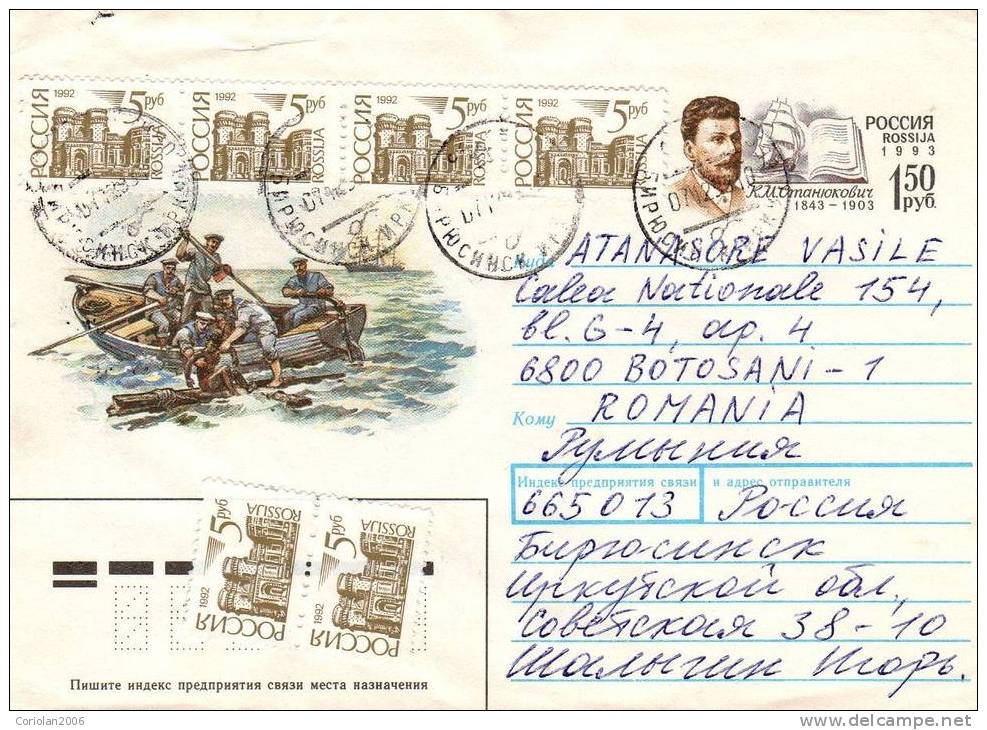 РОССИЯ 1992 5 руб ROSSIJA
РОССИЯ 1992 5 руб ROSSIJA
РОССИЯ 1992 5 руб ROSSIJA
РОССИЯ 1992 5 руб ROSSIJA
РОССИЯ
ROSSIJA
1993
1 50
руб.
К.М.Станюкович
1843-1903
БИРЮСИНСК ИРК
БИРЮСИНСК ИРК
Куда ATANASORE VASILE
Calea Nationale 154,
bl. G-4, ap. 4
6800 BOTOSANI-1
Кому ROMANIA
Румыния
Индекс предприятия связи и адрес отправителя
665013 Россия
Бирюсинск
Иркутской обл.,
Советская 38-10
Шалыгин Игорь.
РОССИЯ 1992 5 руб ROSSIJA
РОССИЯ 1992 5 руб ROSSIJA
Пишите индекс предприятия связи места назначения
Coriolan2006
delcampe.net